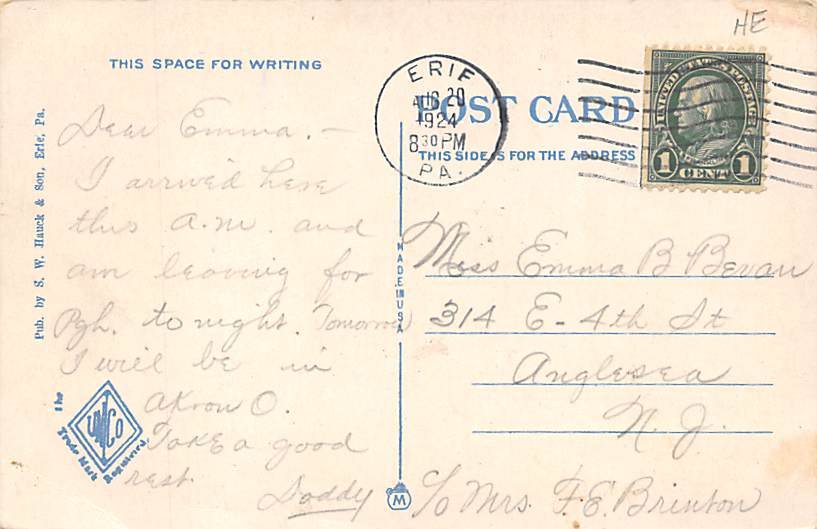 HE
THIS SPACE FOR WRITING
Dear Emma.—
I arrived here
this a.m. and
am leaving for
Pgh. to night. Tomorrow
I will be in
Akron O.
Take a good
rest.
Daddy
Pub. by S. W. Hauck & Son, Erie, Pa.
The
UMCo
Trade Mark Registered
MADE IN USA
M
ERIE
AUG 20
1924
8 30 PM
PA.
POST CARD
THIS SIDE IS FOR THE ADDRESS
UNITED STATES POSTAGE
1 CENT 1
Miss Emma B Bevan
314 E-4th St
Anglesea
N. J.
c/o Mrs. F. E. Brinton